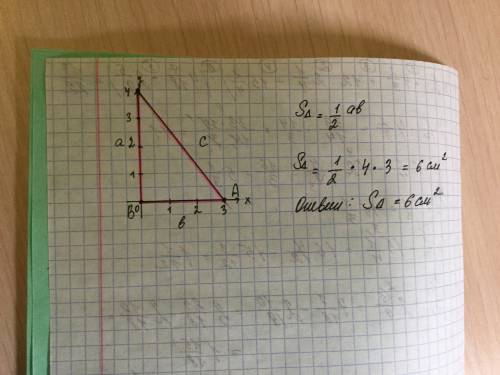 y
4
3
a 2
C
1
B 0 1 2 3 A x
в
S△ = 1/2 ab
S△ = 1/2 · 4 · 3 = 6 см²
Ответ: S△ = 6 см²